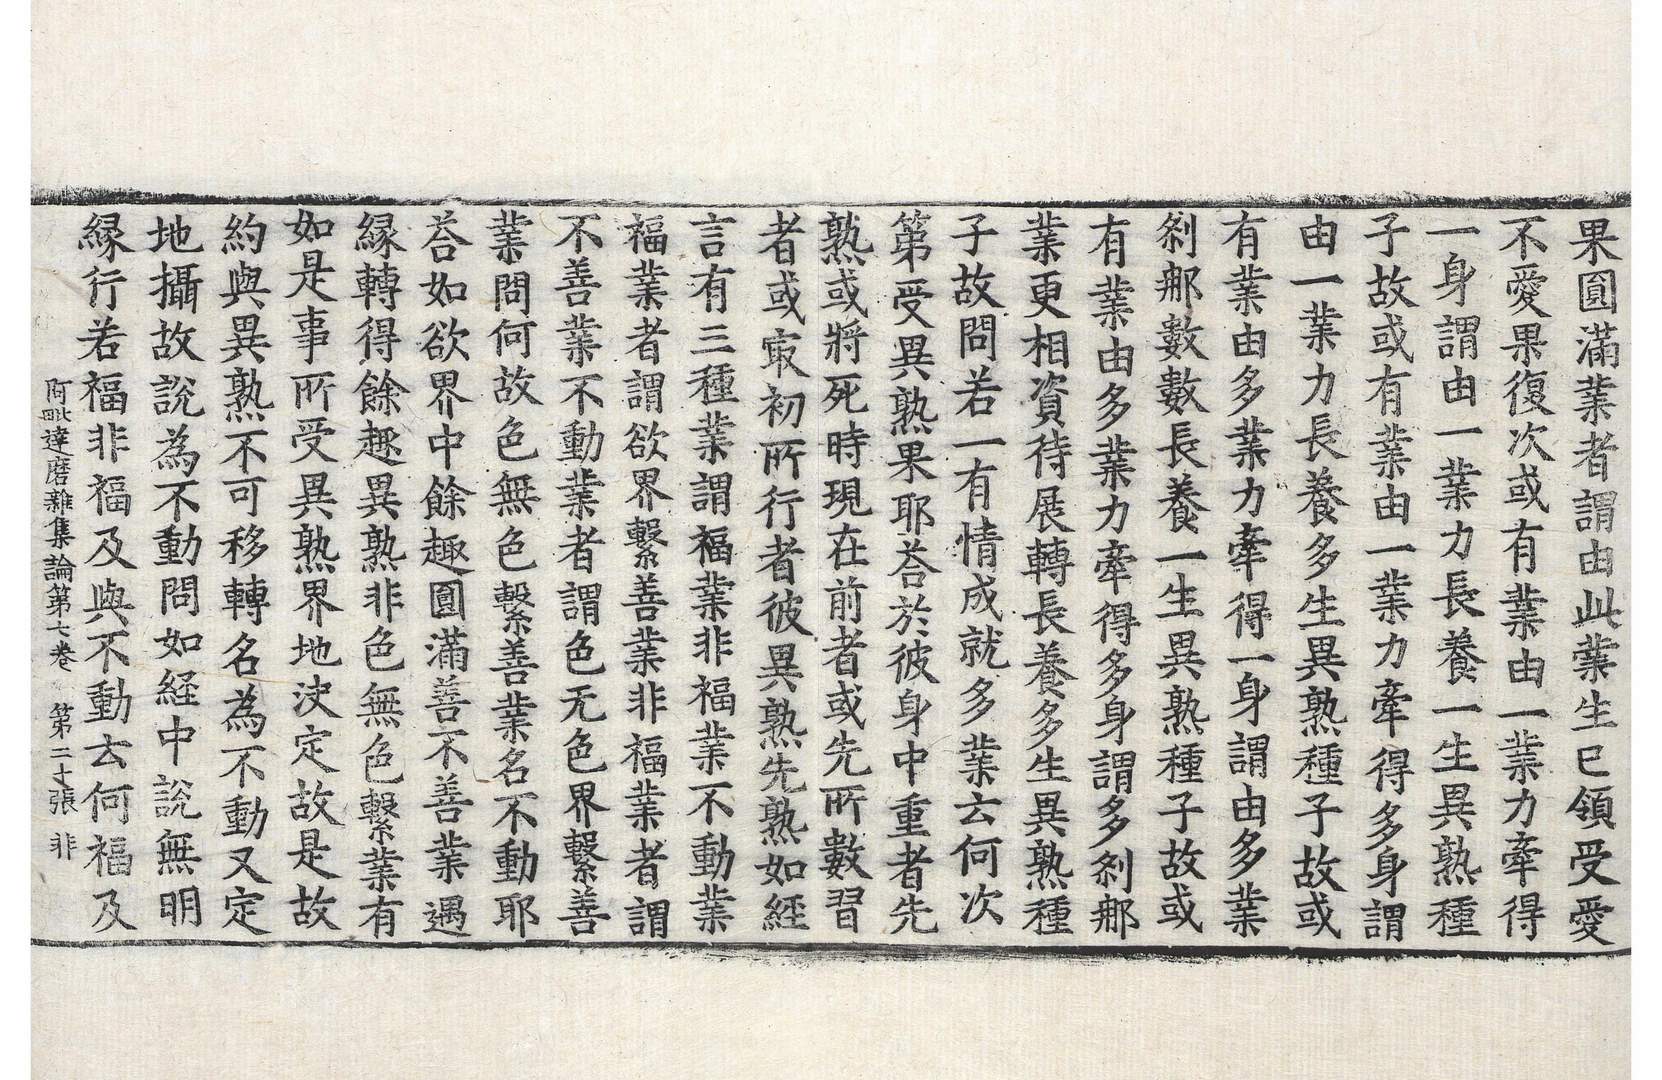 果圓滿業者謂由此業生已領受愛
不愛果復次或有業由一業力牽得
一身謂由一業力長養一生異熟種
子故或有業由一業力牽得多身謂
由一業力長養多生異熟種子故或
有業由多業力牽得一身謂由多業
剎那數數長養一生異熟種子故或
有業由多業力牽得多身謂多剎那
業更相資待展轉長養多生異熟種
子故問若一有情成就多業云何次
第受異熟果耶荅於彼身中重者先
熟或將死時現在前者或先所數習
者或㝡初所行者彼異熟先熟如經
言有三種業謂福業非福業不動業
福業者謂欲界繫善業非福業者謂
不善業不動業者謂色无色界繫善
業問何故色無色繫善業名不動耶
荅如欲界中餘趣圓滿善不善業遇
緣轉得餘趣異熟非色無色繫業有
如是事所受異熟界地決定故是故
約與異熟不可移轉名為不動又定
地攝故說為不動問如經中說無明
緣行若福非福及與不動云何福及
阿毗達磨雜集論第七卷 第二十張 非